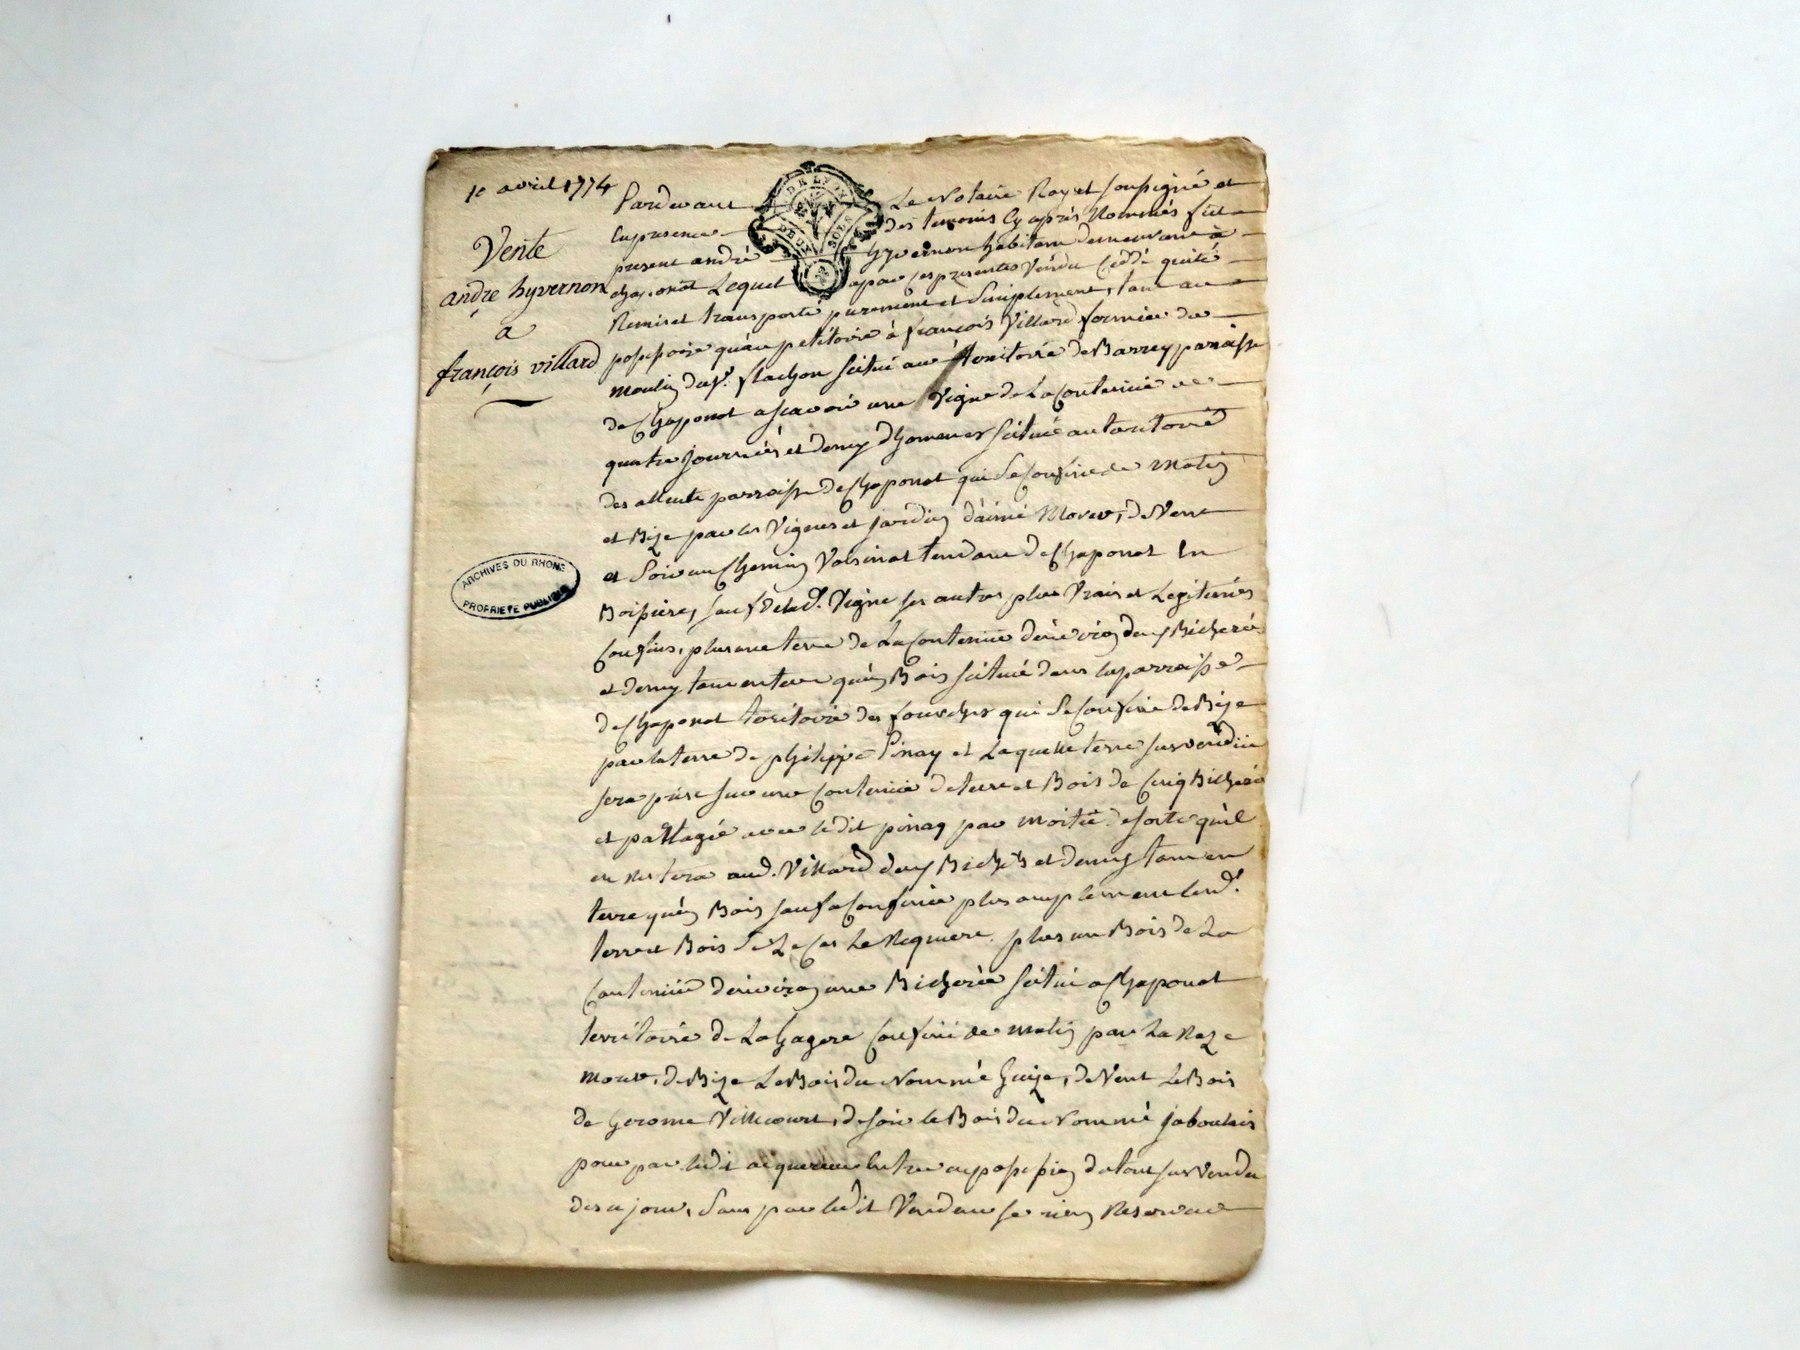 10 avril 1774
Vente
andre hyvernon
a
françois villard
ARCHIVES DU RHONE
PROPRIETE PUBLIQUE
DE LYON
DEUX SOLS
Pardevant Le Notaire Royal soussigné et
En presence des temoins cy après Nommés fut
present andré hyvernon habitant demeurant à
chaponost Lequel a par ces presentes Vendu Ceddé quitté
Remis et transporté purement et simplement, tant au
possessoire qu'au petitoire à françois Villard fermier du
moulin du Sr. flachon scitué au territoire de Barrey parroisse
de Chaponost a scavoir une Vigne de La Contenüe de
quatre journées et demy d'hommes scitué au territoire
des parroisse de Chaponost qui se Confine de Matin
et Bize par les Vignes et jardin d'aimé de Vent
et Soir un Chemin Voisinat tendant de Chaponost En
sauf de lad. Vigne ses autres plus Vrais et Legitimes
Confins, plus une terre de La Contenüe d'environ deux Bicherée
et demy tant en terre qu'en Bois scitué dans la parroisse
de Chaponost territoire des fourches qui se Confine de Bize
par la terre de philippe Pinay et Laquelle terre sus vendüe
sera prise sur une Contenüe de terre et Bois de Cinq Bicherée
et partagée avec ledit pinay par moitié de sorte qu'il
en restera aud. Villard deux Bicherés et demy tant en
terre qu'en Bois sauf a Confiner plus amplement lesd.
terre et Bois Si Le Cas Le Requiere. plus un Bois de La
Contenüe d'environ une Bicherée scitué a Chaponost
territoire de La Confiné de matin par La Raze
de Bize Le Bois du Nommé de Vent Le Bois
de Gerome Villecourt, de soir le Bois du Nommé jaboulais
pour par ledit acquereur Entrer en possession de tout sus Vendu
des ce jour, Sans par ledit Vendeur se rien Reserver